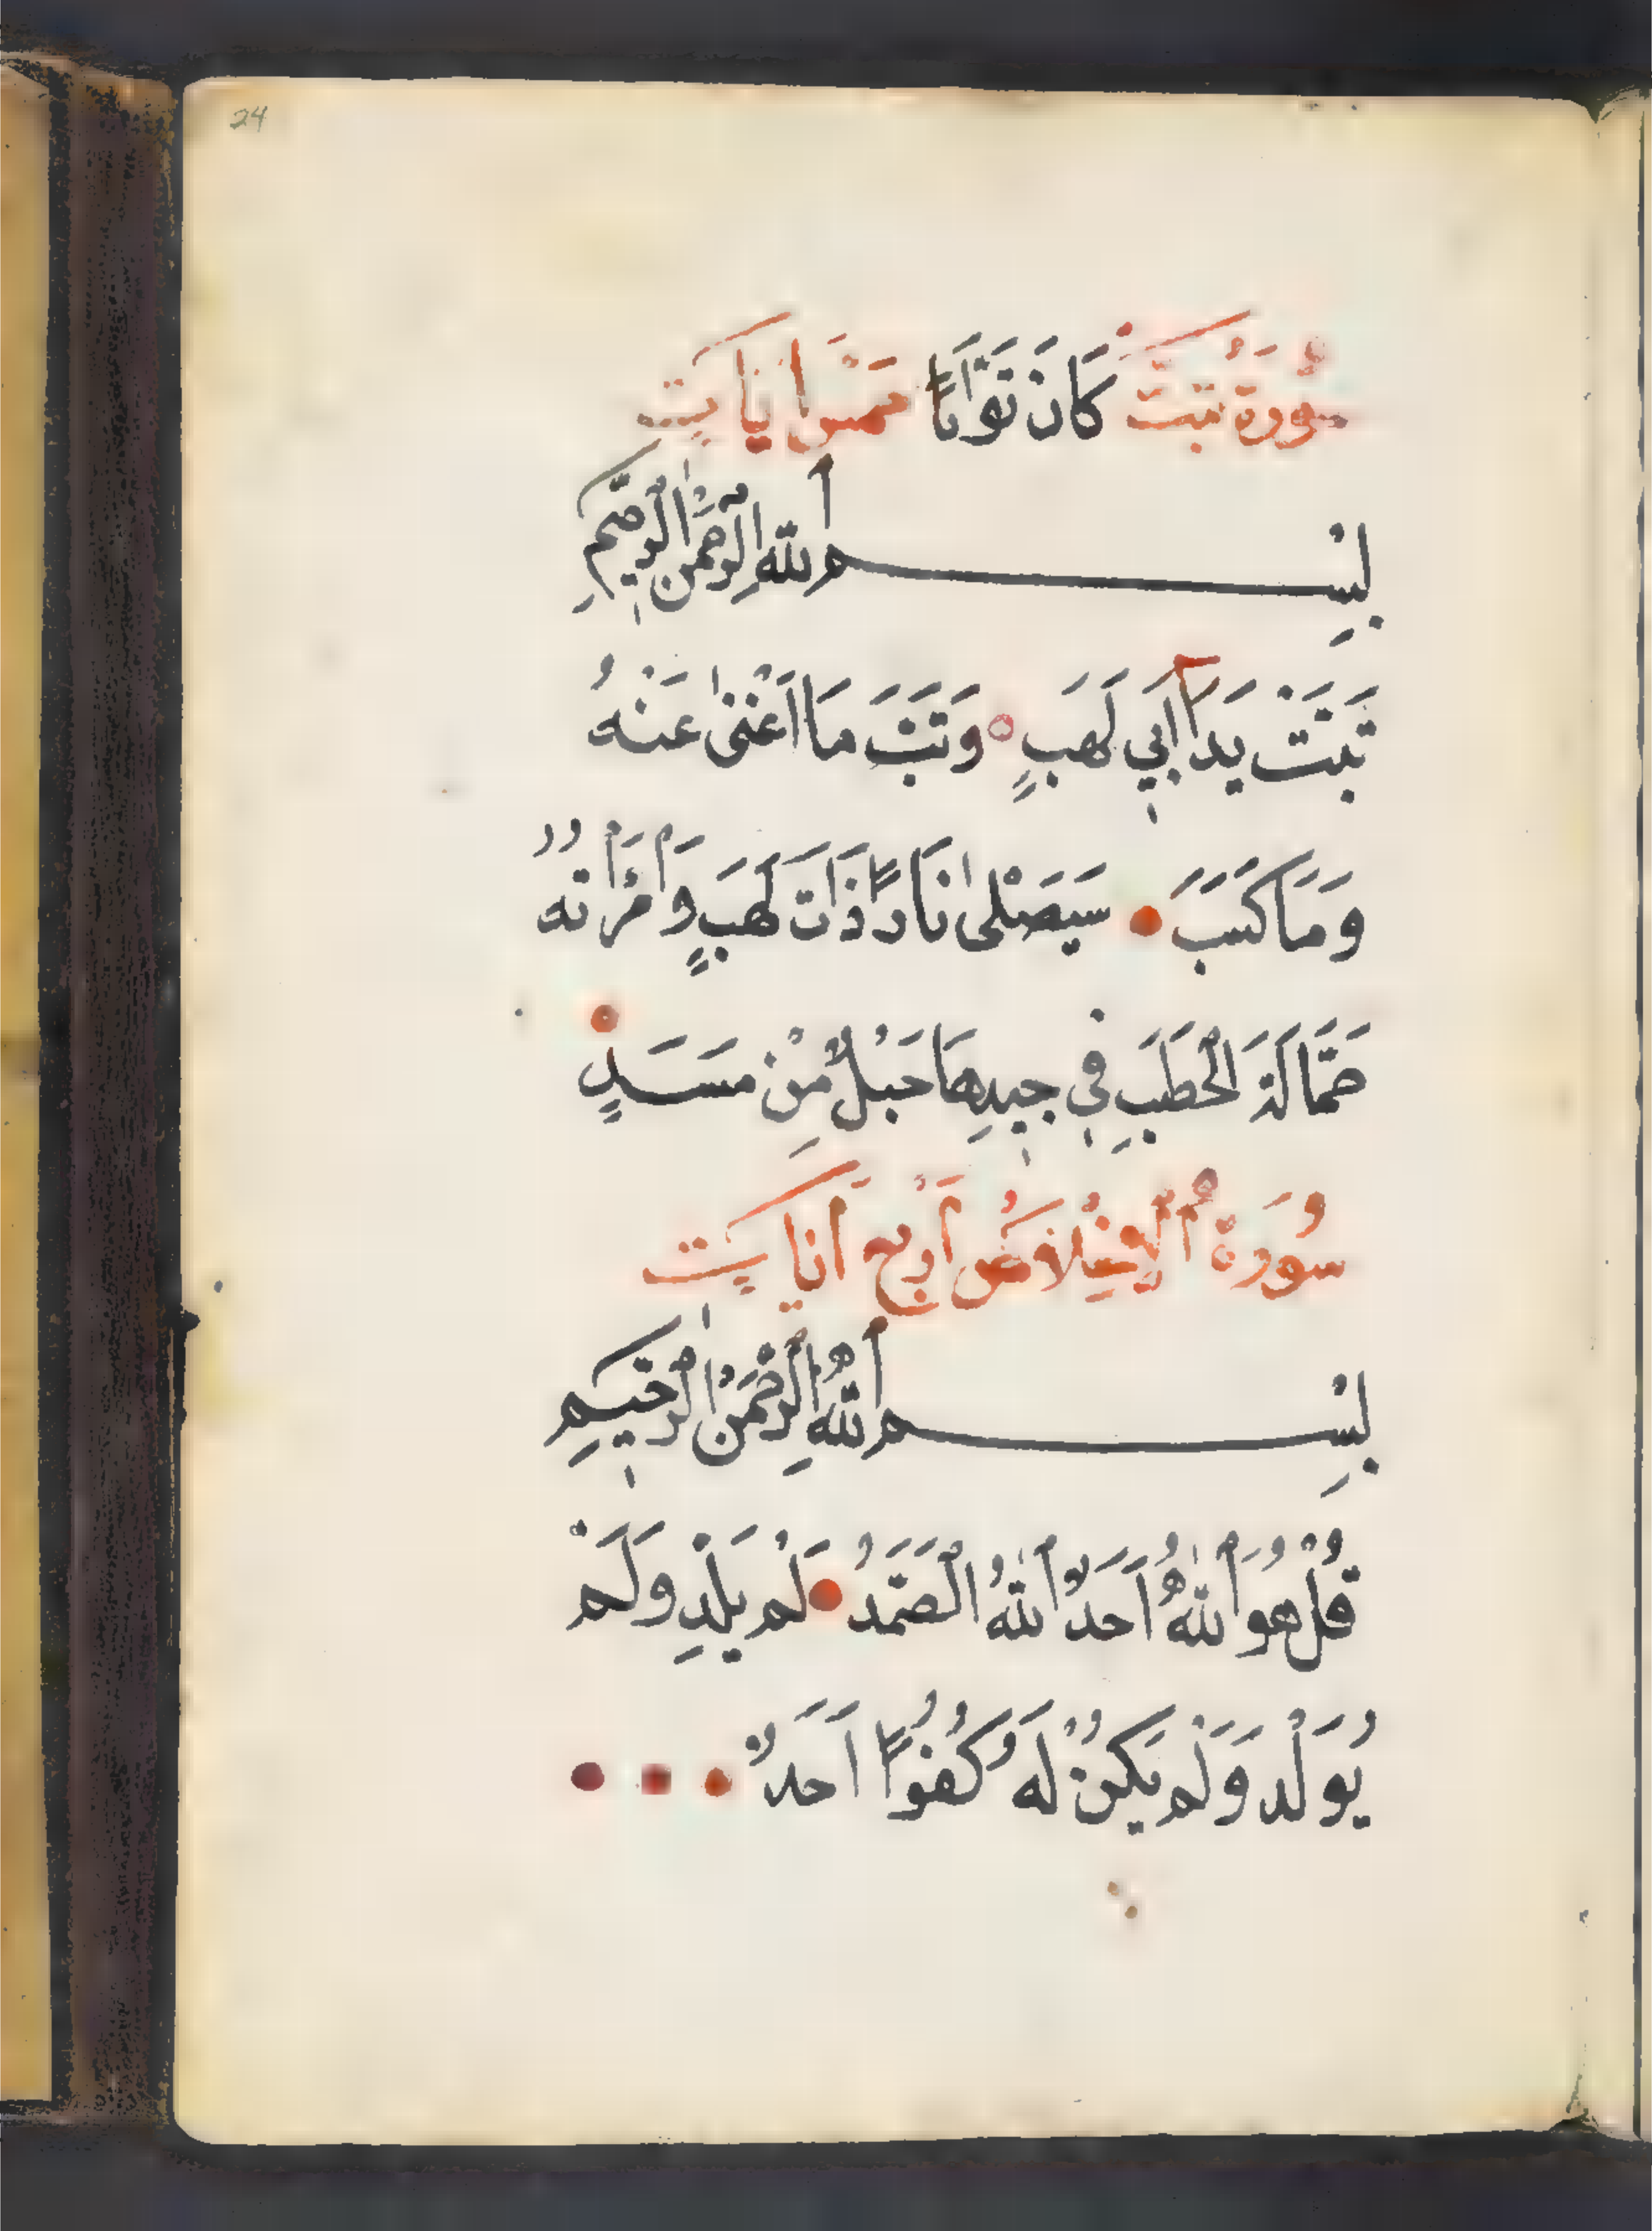 24
سُورَةُ تَبَّتْ كَانَ تَوَّابًا خَمْسُ اٰيَاتٍ
بِسْمِ اللّٰهِ الرَّحْمٰنِ الرَّحِيْمِ
تَبَّتْ يَدَا اَبِي لَهَبٍ وَتَبَّ مَا اَغْنٰى عَنْهُ
وَمَا كَسَبَ سَيَصْلٰى نَارًا ذَاتَ لَهَبٍ وَامْرَاَتُهُ
حَمَّالَةَ الْحَطَبِ فِي جِيدِهَا حَبْلٌ مِنْ مَسَدٍ
سُورَةُ الْاِخْلَاصِ اَرْبَعُ اٰيَاتٍ
بِسْمِ اللّٰهِ الرَّحْمٰنِ الرَّحِيْمِ
قُلْ هُوَ اللّٰهُ اَحَدٌ اَللّٰهُ الصَّمَدُ لَمْ يَلِدْ وَلَمْ
يُولَدْ وَلَمْ يَكُنْ لَهُ كُفُوًا اَحَدٌ